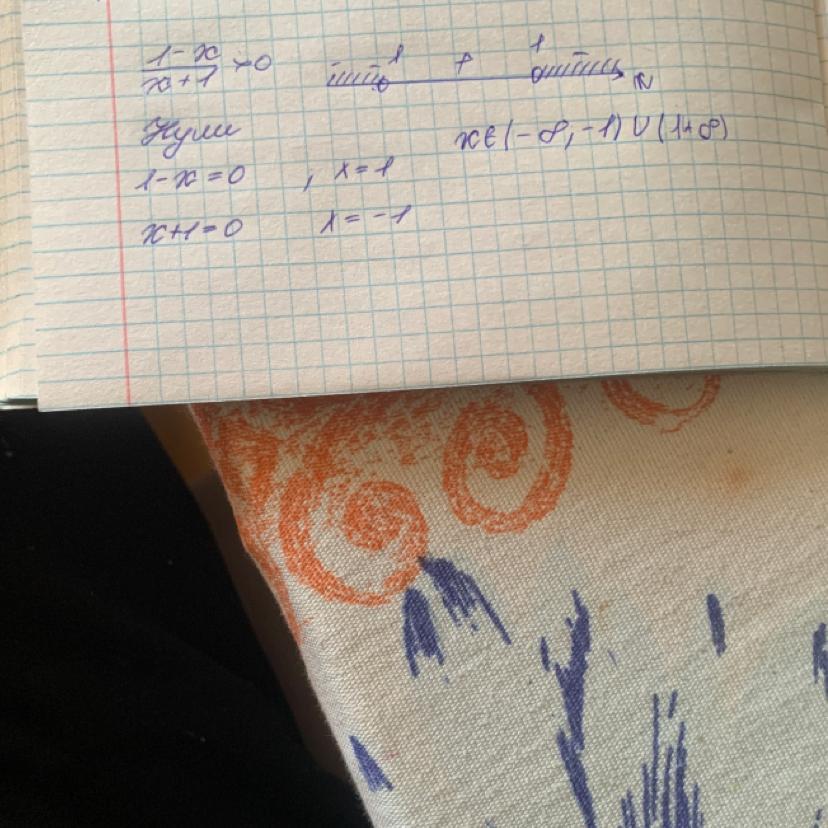 1-x/x+1 >0
- -1 + 1 - x
Нули
x∈(-∞,-1)∪(1+∞)
1-x=0 , x=1
x+1=0 x=-1